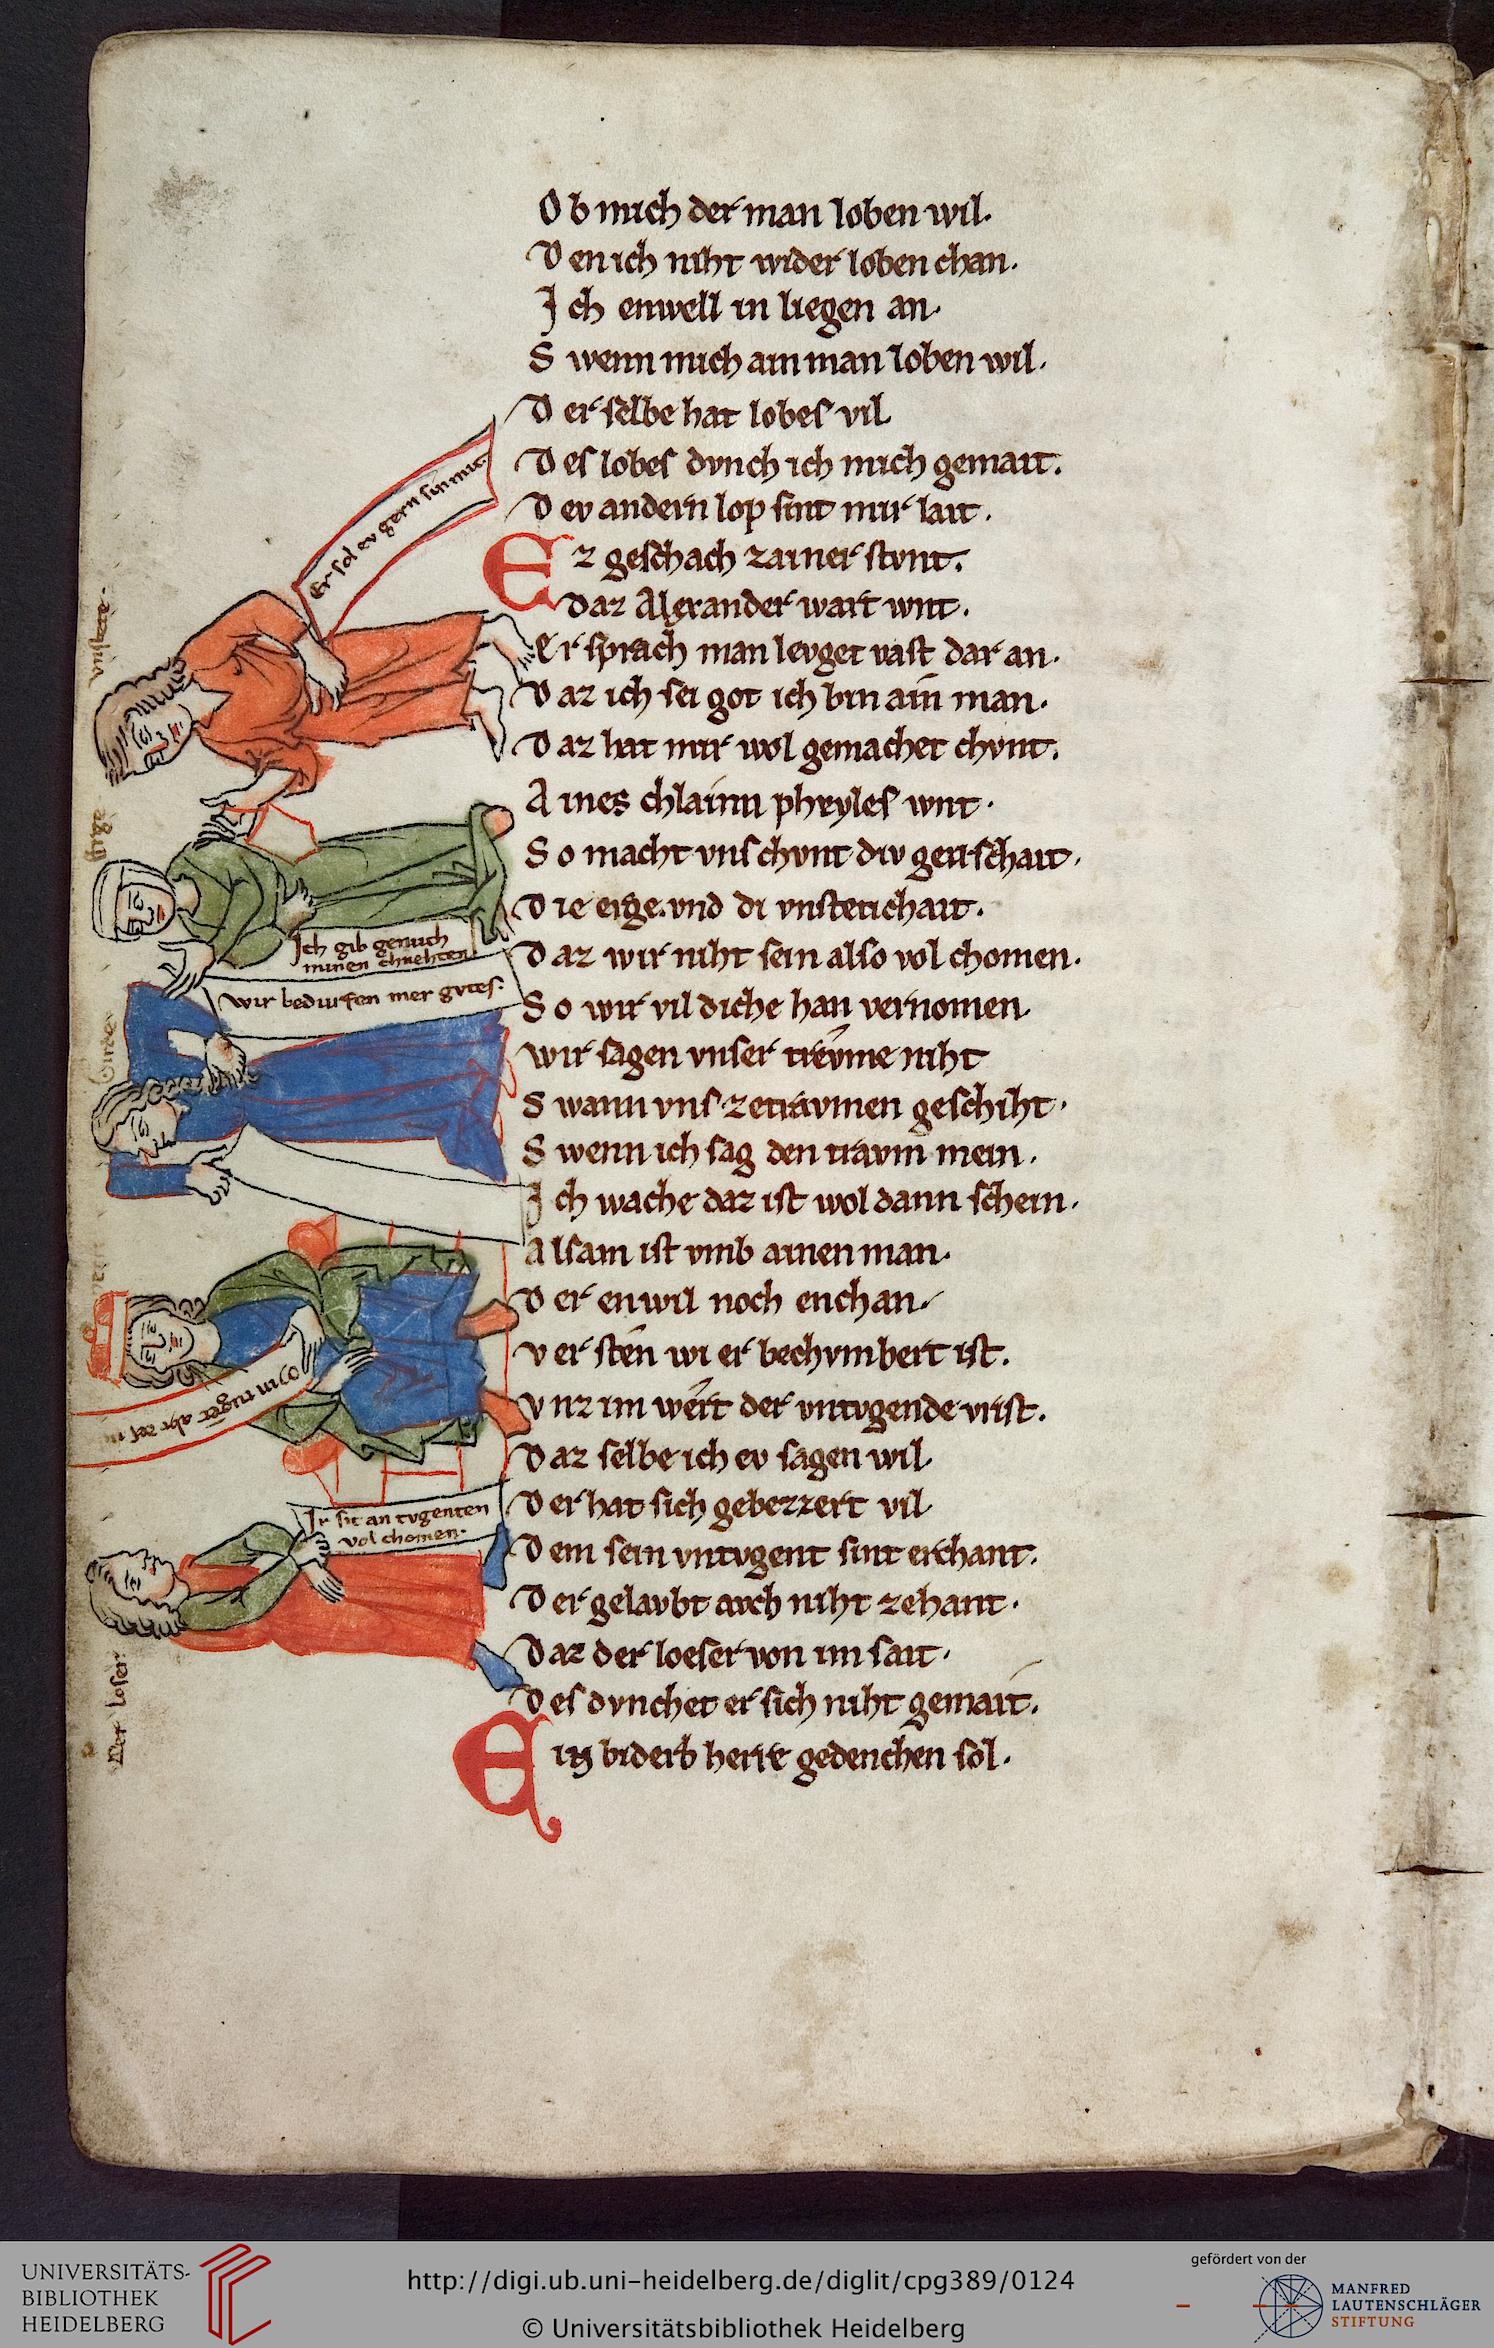 Ob mich der man loben wil.
Den ich niht wider loben chan.
Ich enwell in liegen an.
Swenn mich ain man loben wil.
Der selbe hat lobes vil
Des lobes dvnch ich mich gemait.
Dev andern lop sint mir lait.
Ez geschach zainer stvnt.
daz Alexander wart wnt.
Er sprach man levget vast dar an.
Daz ich sei got ich bin ain man.
Daz hat mir wol gemachet chvnt.
Aines chlainn pheyles wnt.
So macht vns chvnt div geitschait.
Die erge. vnd di vnstetichait.
Daz wir niht sein also vol chomen.
So wir vil diche han vernomen.
Wir sagen vnser trevme niht
Swann vns zetravmen geschiht.
Swenn ich sag den travm mein.
Ich wache daz ist wol dann schein.
Alsam ist vmb ainen man.
Der enwil noch enchan.
Versten wi er bechvmbert ist.
Vnz im wert der vntvgende vrist.
Daz selbe ich ev sagen wil
Der hat sich gebezzert vil
Dem sein vntvgent sint erchant.
Der gelavbt avch niht zehant.
Daz der loeser von im sait.
Des dvnchet er sich niht gemait.
Ein biderb herre gedenchen sol.
Er sol ev gern sin mit
vnstete.
Erge
Ich gib genuch
minen chnehten
Wir bedurfen mer gvtes.
Girde
Ir sit an tvgenten
vol chomen.
Der loser
UNIVERSITÄTS-
BIBLIOTHEK
HEIDELBERG
http://digi.ub.uni-heidelberg.de/diglit/cpg389/0124
© Universitätsbibliothek Heidelberg
gefördert von der
MANFRED
LAUTENSCHLÄGER
STIFTUNG